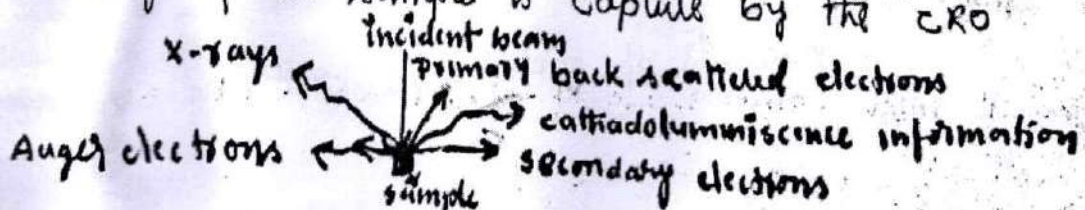 sample is capture by the CRO
X-rays
incident beam
primary back scattered electrons
cathadoluminiscence information
Auger electrons
secondary electrons
sample